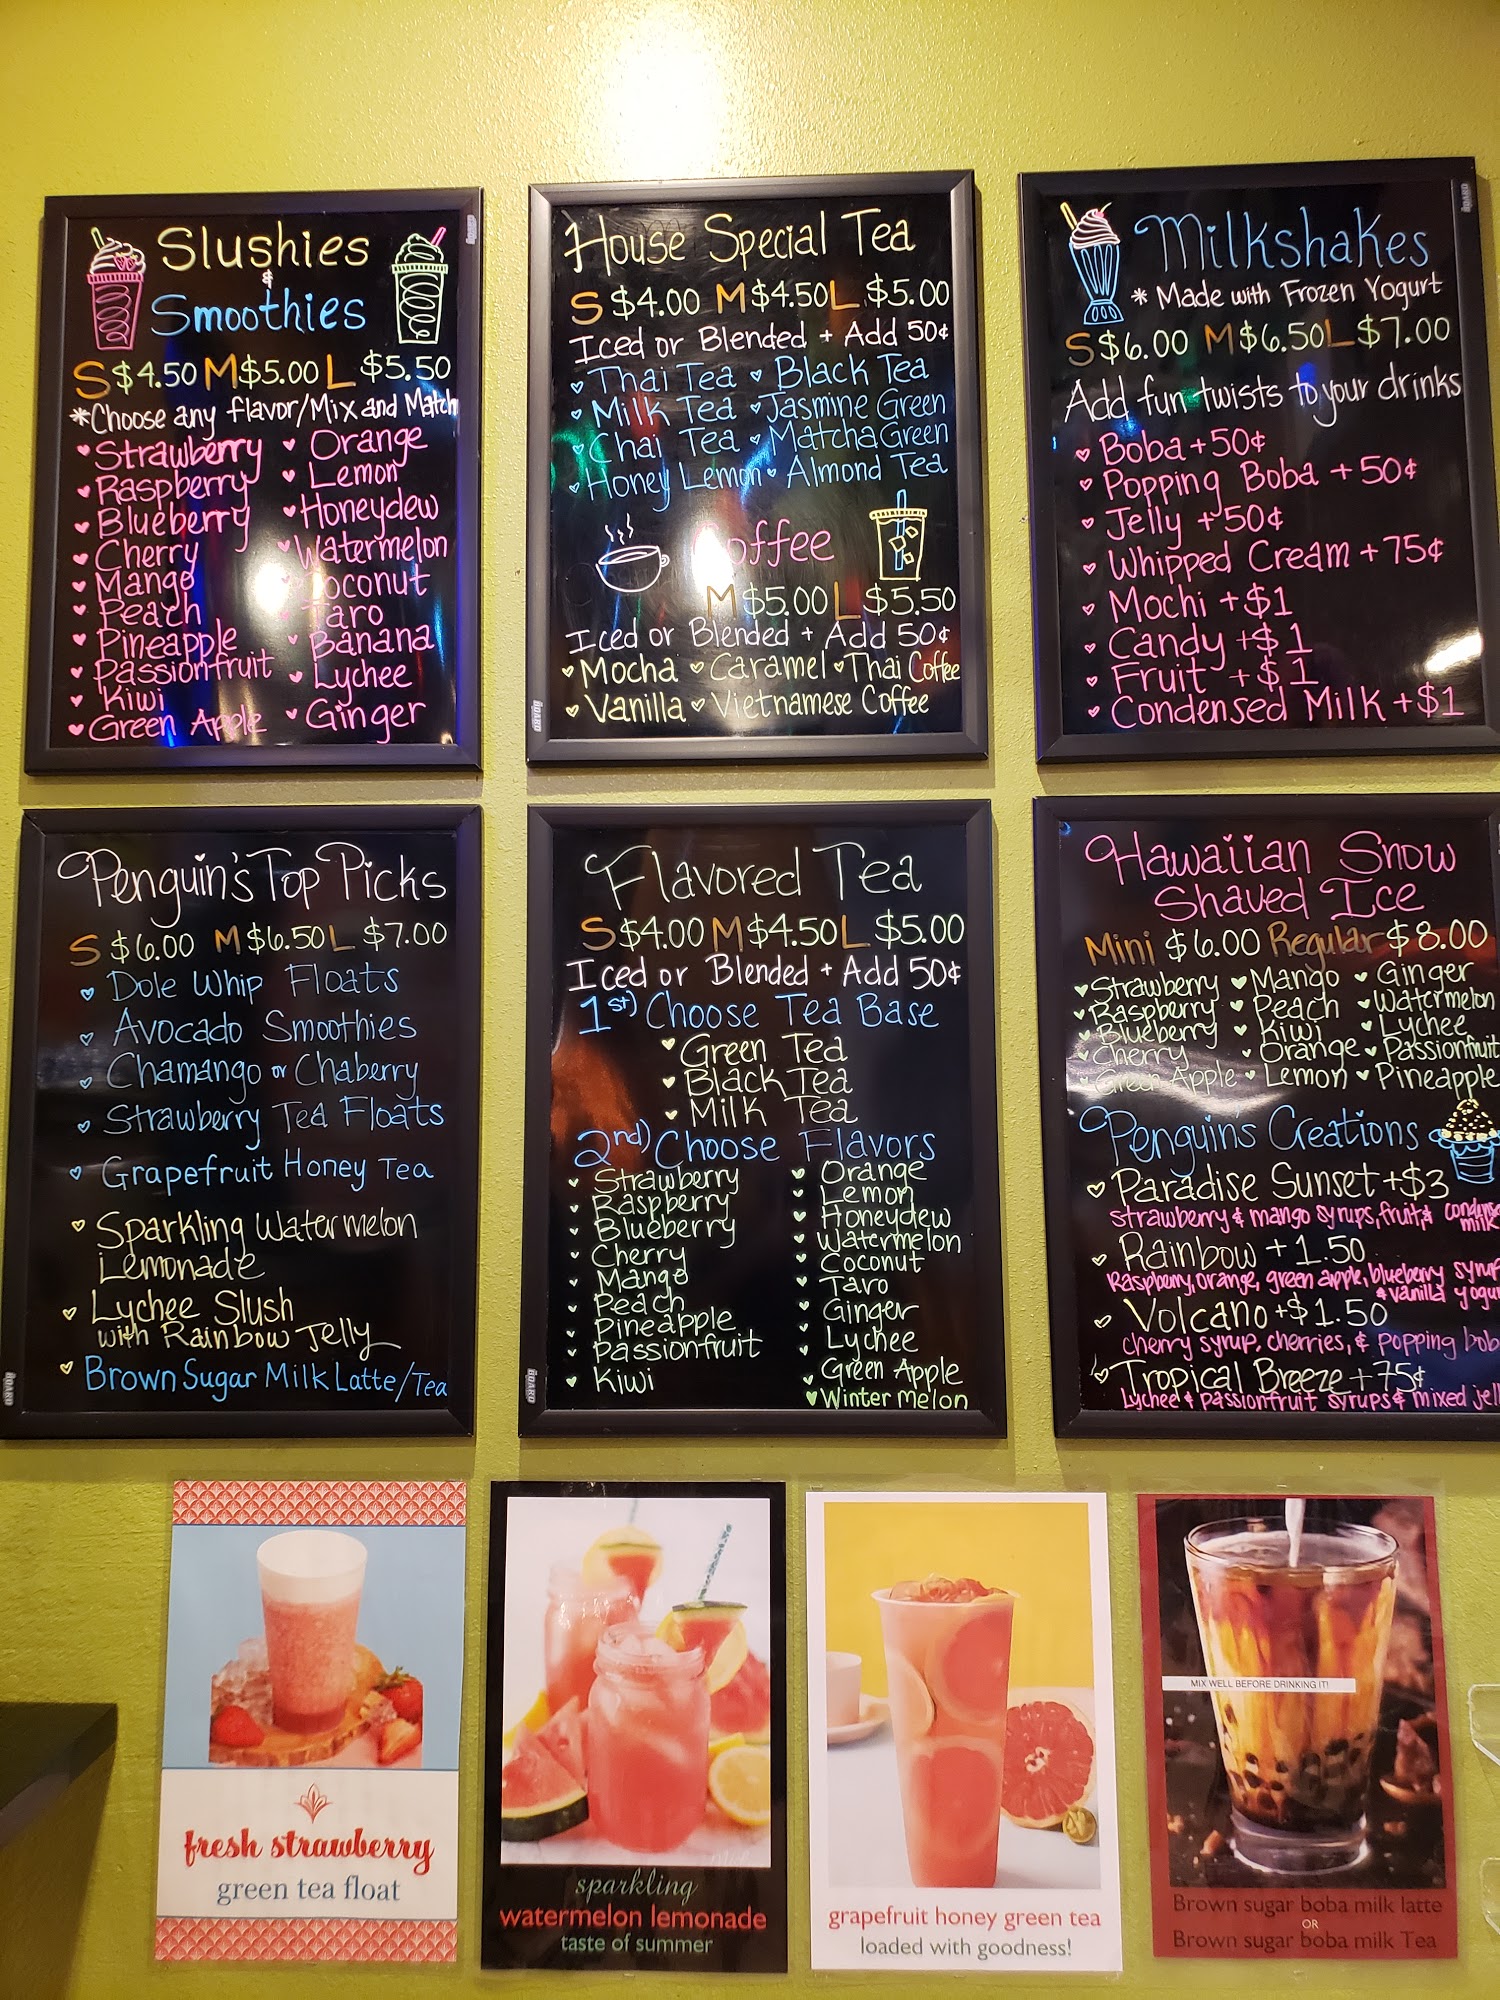 Slushies
&
Smoothies
S $4.50 M $5.00 L $5.50
*Choose any flavor/Mix and Match
Strawberry
Raspberry
Blueberry
Cherry
Mango
Peach
Pineapple
Passionfruit
Kiwi
Green Apple
Orange
Lemon
Honeydew
Watermelon
Coconut
Taro
Banana
Lychee
Ginger
House Special Tea
S $4.00 M $4.50 L $5.00
Iced or Blended + Add 50¢
Thai Tea Black Tea
Milk Tea Jasmine Green
Chai Tea Matcha Green
Honey Lemon Almond Tea
Coffee
M $5.00 L $5.50
Iced or Blended + Add 50¢
Mocha Caramel Thai Coffee
Vanilla Vietnamese Coffee
Milkshakes
* Made with Frozen Yogurt
S $6.00 M $6.50 L $7.00
Add fun twists to your drinks
Boba +50¢
Popping Boba +50¢
Jelly +50¢
Whipped Cream +75¢
Mochi +$1
Candy +$1
Fruit +$1
Condensed Milk +$1
Penguin's Top Picks
S $6.00 M $6.50 L $7.00
Dole Whip Floats
Avocado Smoothies
Chamango or Chaberry
Strawberry Tea Floats
Grapefruit Honey Tea
Sparkling Watermelon
Lemonade
Lychee Slush
with Rainbow Jelly
Brown Sugar Milk Latte/Tea
Flavored Tea
S $4.00 M $4.50 L $5.00
Iced or Blended + Add 50¢
1st) Choose Tea Base
Green Tea
Black Tea
Milk Tea
2nd) Choose Flavors
Strawberry
Raspberry
Blueberry
Cherry
Mango
Peach
Pineapple
Passionfruit
Kiwi
Orange
Lemon
Honeydew
Watermelon
Coconut
Taro
Ginger
Lychee
Green Apple
Winter melon
Hawaiian Snow
Shaved Ice
Mini $6.00 Regular $8.00
Strawberry Mango Ginger
Raspberry Peach Watermelon
Blueberry Kiwi Lychee
Cherry Orange Passionfruit
Green Apple Lemon Pineapple
Penguin's Creations
Paradise Sunset +$3
strawberry & mango syrups, fruit, &
milk
Rainbow + 1.50
Raspberry, orange, green apple, blueberry
& vanilla
Volcano +$1.50
cherry syrup, cherries, & popping
Tropical Breeze +75¢
Lychee & passionfruit syrups & mixed
fresh strawberry
green tea float
sparkling
watermelon lemonade
taste of summer
grapefruit honey green tea
loaded with goodness!
MIX WELL BEFORE DRINKING IT!
Brown sugar boba milk latte
OR
Brown sugar boba milk Tea